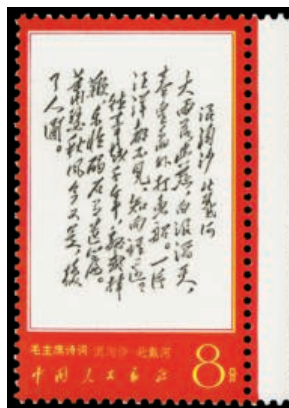 浪淘沙 北戴河
大雨落幽燕,白浪滔天,
秦皇岛外打鱼船。一片
汪洋都不见,知向谁边。
往事越千年,魏武挥
鞭,东临碣石有遗篇。
萧瑟秋风今又是,换
了人间。
毛主席诗词 浪淘沙 北戴河
中国人民邮政
8分